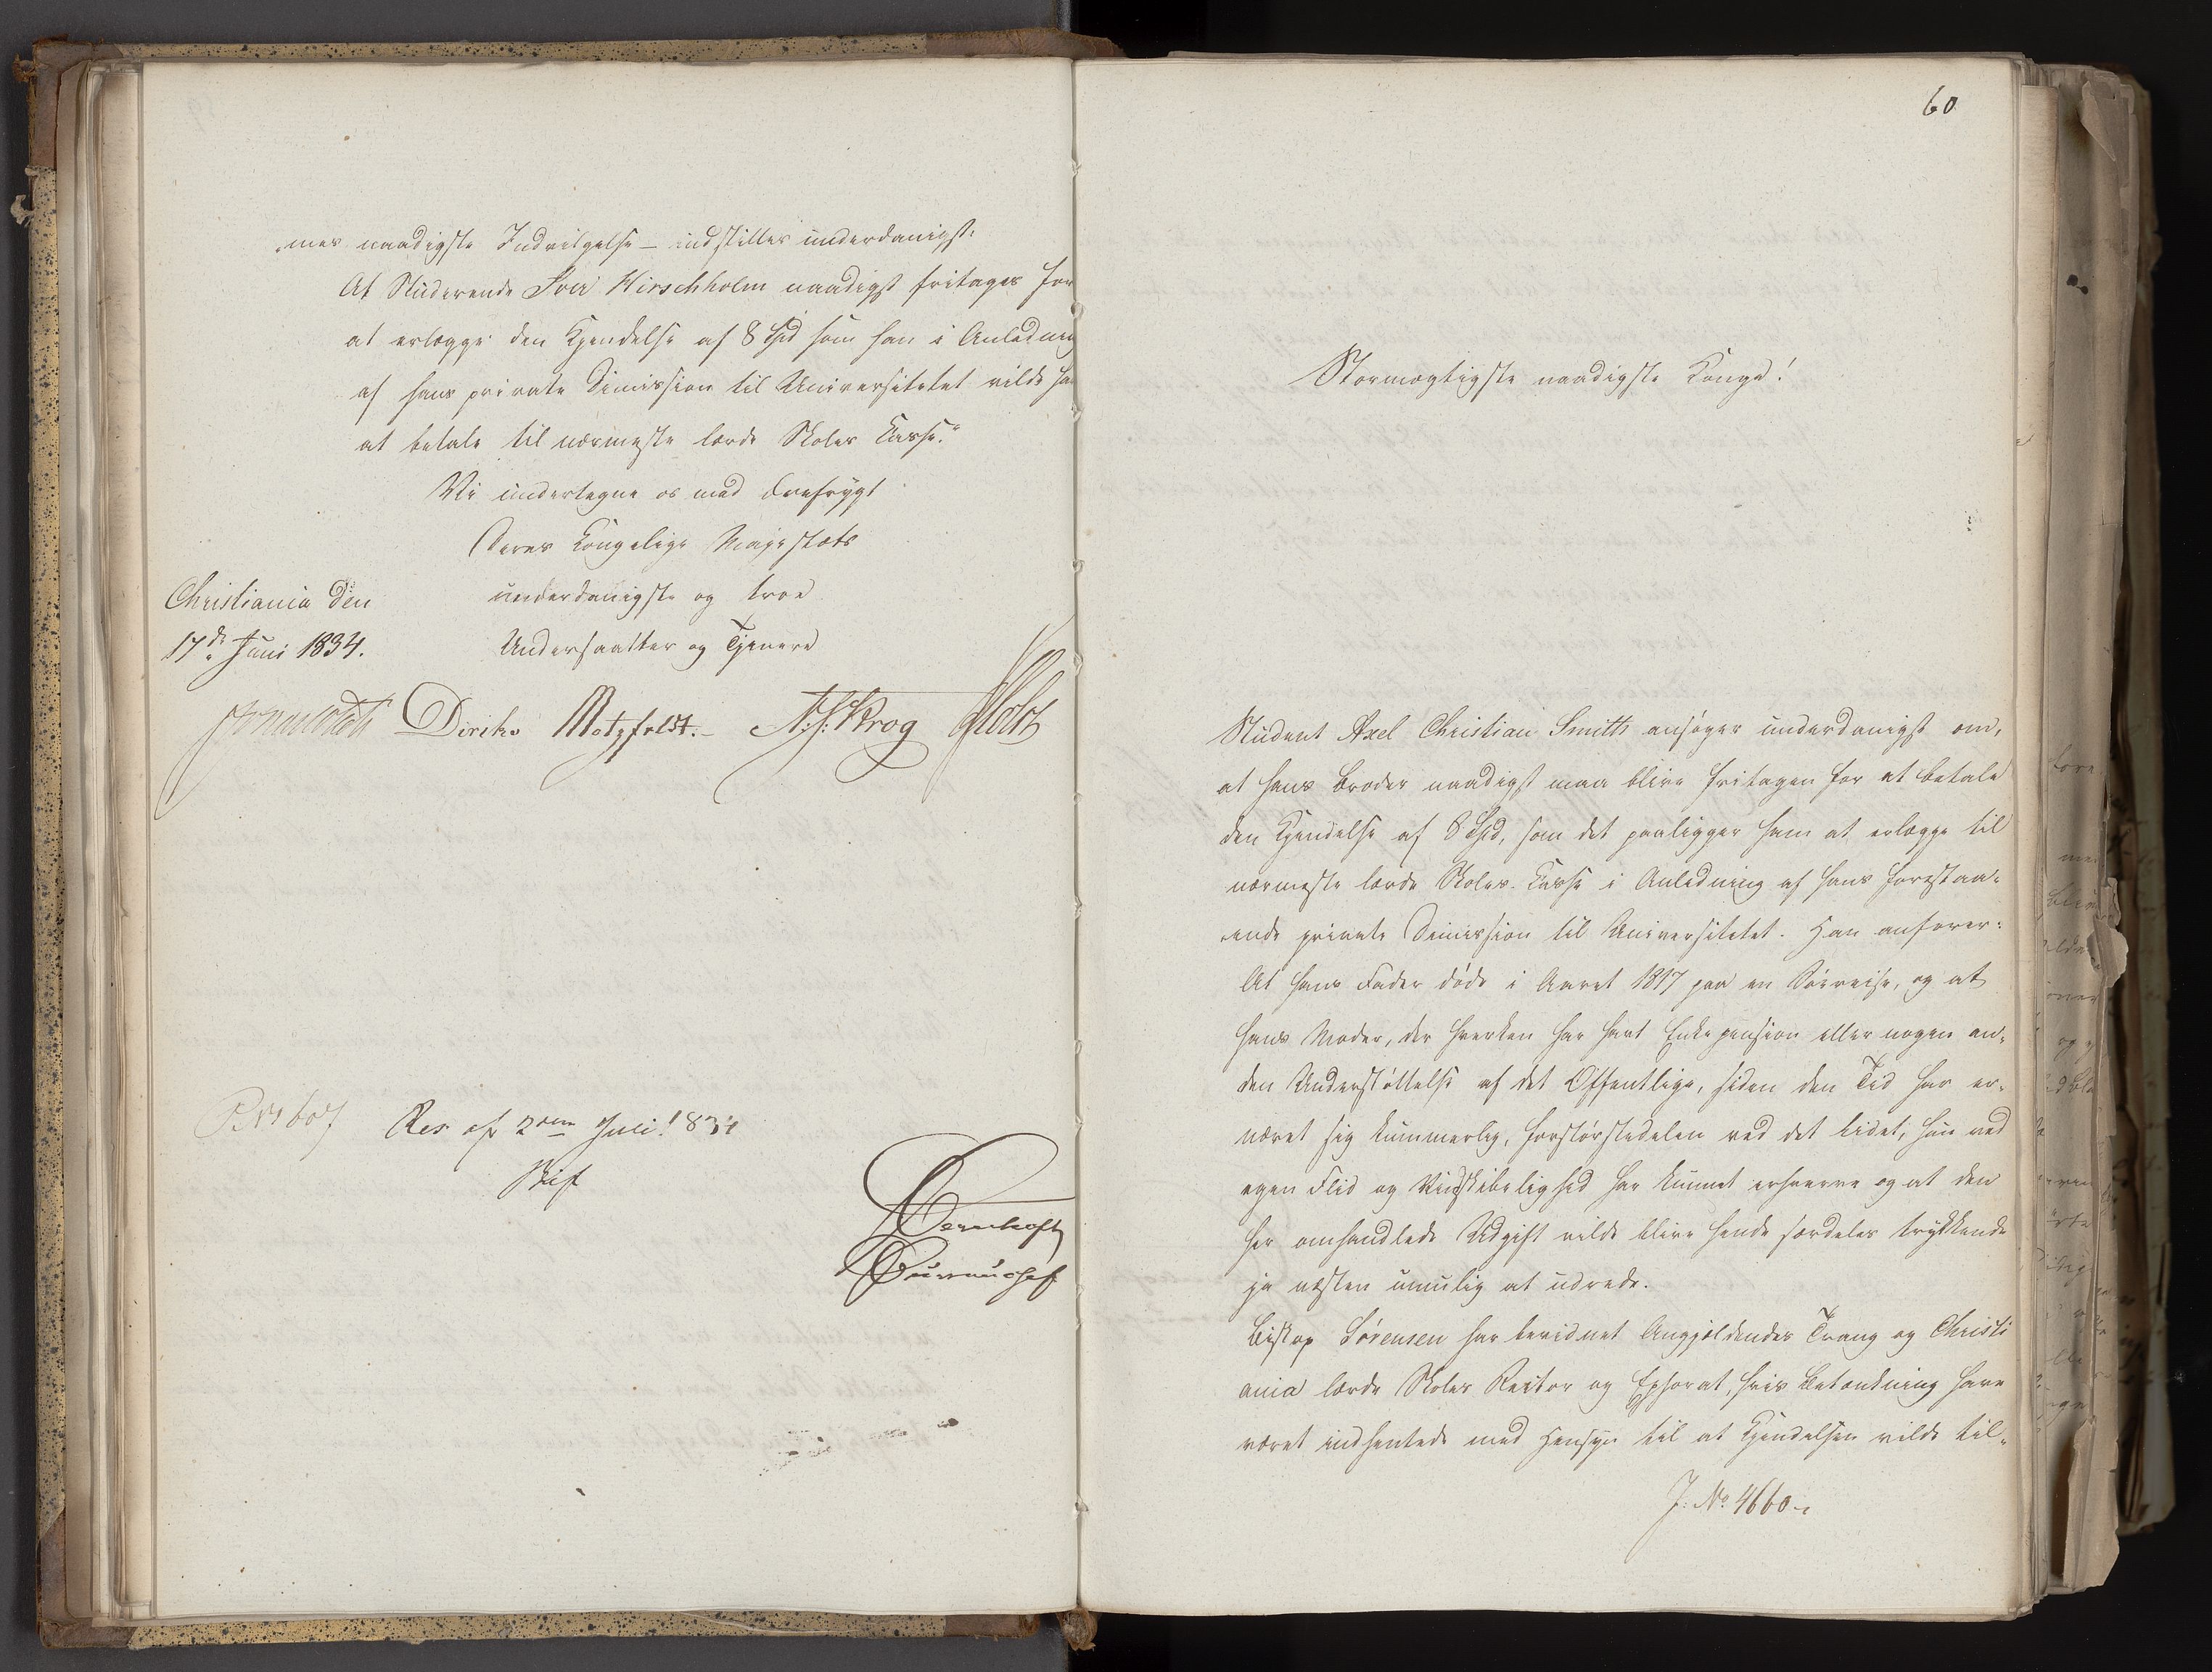 mes naadigste Indvilgelse – indstilles underdanigst:
At Studerende Iver Hirschholm naadigst fritages for
at erlægge den Kjendelse af 8 Spd som han i Anledning
af hans private Dimission til Universitetet vilde ha
at betale til nærmeste lærde Skoles Casse."
Vi undertegne os med Ærefrygt
Deres Kongelige Majestæts
Christiania den
underdanigste og troe
17de Juni 1834.
Undersaatter og Tjenere
Diriks Motzfeldt. Krog Holst
No 607 Res af 2den Juli 1834
60
Stormægtigste naadigste Konge!
Student Axel Christian Smith ansøger underdanigst om,
at hans Broder naadigst maa blive fritagen for at betale
den Kjendelse af 8 Spd, som det paaligger ham at erlægge til
nærmeste lærde Skoles Casse i Anledning af hans forestaa-
ende private Dimission til Universitetet. Han anfører:
At hans Fader døde i Aaret 1817 paa en Søreise, og at
hans Moder, der hverken har havt Enkepension eller nogen an-
den Understøttelse af det Offentlige, siden den Tid har er-
næret sig kummerlig, forstørstedelen ved det Lidet, hun ved
egen Flid og Vindskibelighed har kunnet erhverve og at den
her omhandlede Udgift vilde blive hende særdeles trykkende
ja næsten umulig at udrede.
Biskop Sørensen har bevidnet Angjældendes Trang og Christi
ania lærde Skoles Rector og Ephorat, hvis Betænkning have
været indhentede med Hensyn til at Kjendelsen vilde til-
J: No. 4660